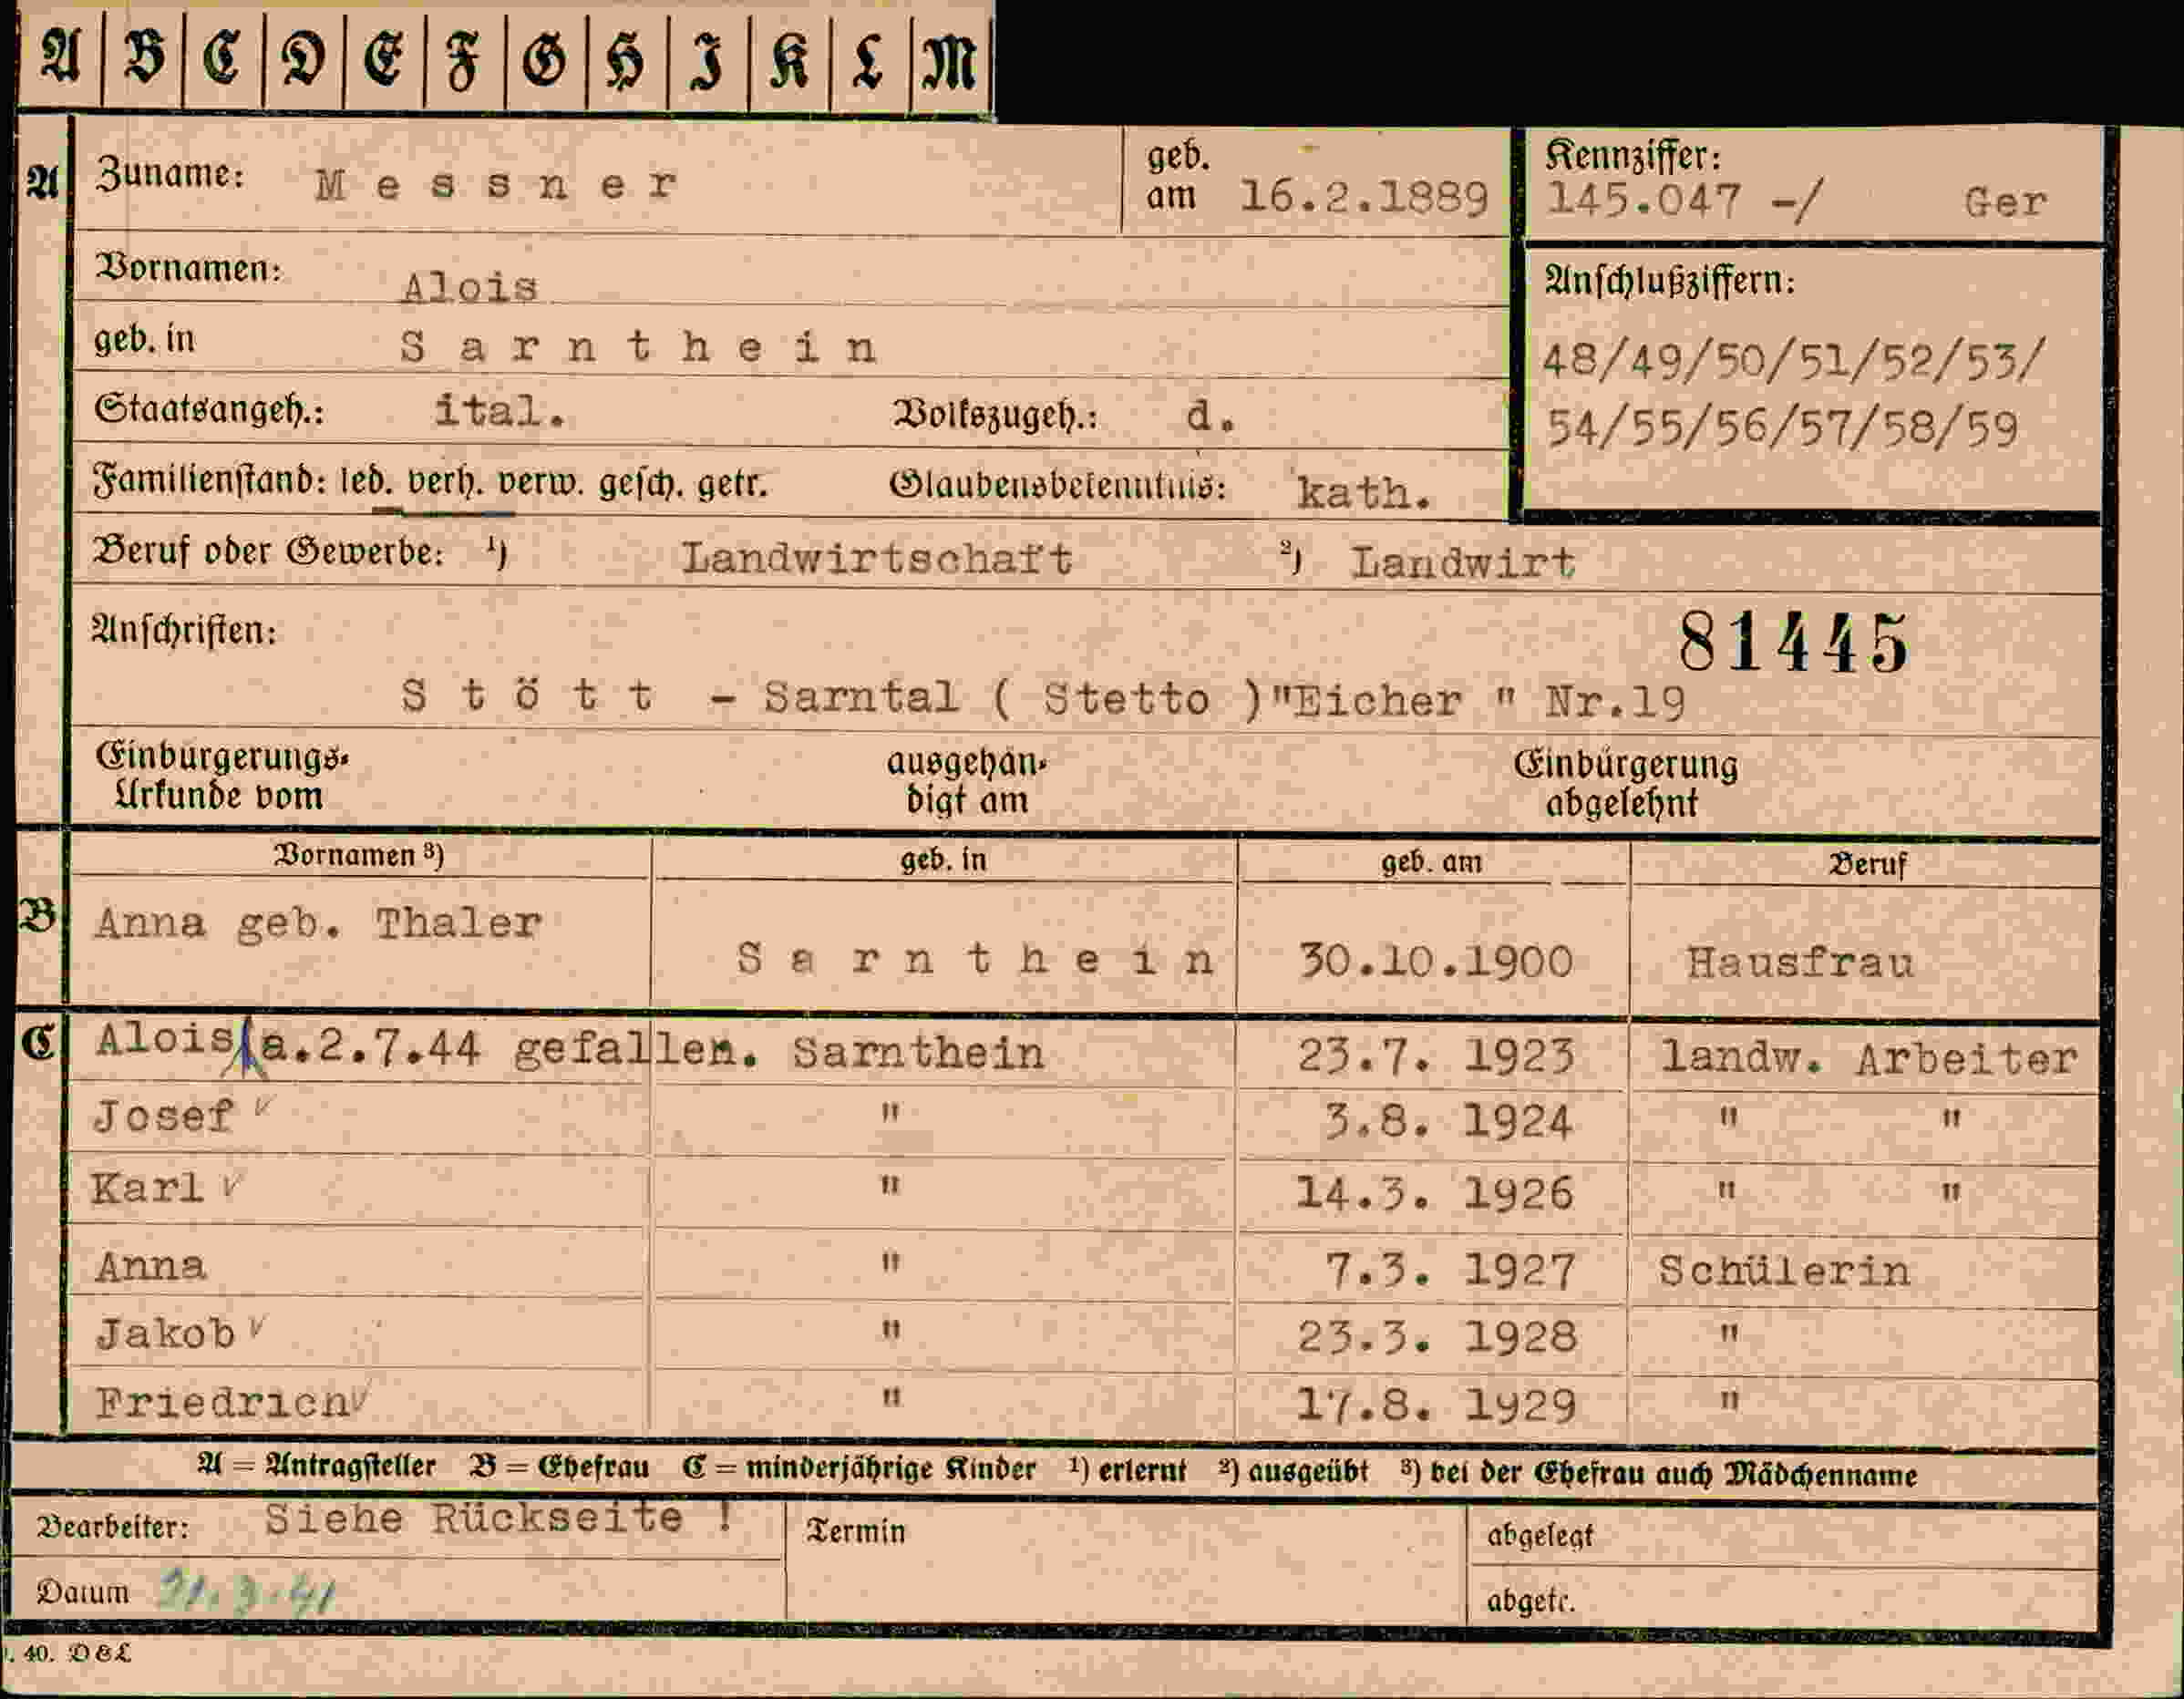 A B C D E F G H I K L M
A Zuname: Messner geb. am 16.2.1889 Kennziffer: 145.047 -/ Ger
Vornamen: Alois Anschlußziffern:
geb. in Sarnthein 48/49/50/51/52/53/
Staatsangeh.: ital. Volkszugeh.: d. 54/55/56/57/58/59
Familienstand: led. verh. verw. gesch. getr. Glaubensbekenntnis: kath.
Beruf oder Gewerbe: ¹) Landwirtschaft ²) Landwirt
Anschriften: 81445
Stött - Sarntal ( Stetto )"Eicher " Nr.19
Einbürgerungs- ausgehän- Einbürgerung
Urkunde vom digt am abgelehnt
Vornamen ³) geb. in geb. am Beruf
B Anna geb. Thaler
Sarnthein 30.10.1900 Hausfrau
C Alois a.2.7.44 gefallen. Sarnthein 23.7. 1923 landw. Arbeiter
Josef " 3.8. 1924 " "
Karl " 14.3. 1926 " "
Anna " 7.3. 1927 Schülerin
Jakob " 23.3. 1928 "
Friedrich " 17.8. 1929 "
A = Antragsteller B = Ehefrau C = minderjährige Kinder ¹) erlernt ²) ausgeübt ³) bei der Ehefrau auch Mädchenname
Bearbeiter: Siehe Rückseite ! Termin abgelegt
Datum abgetr.
. 40. D&L